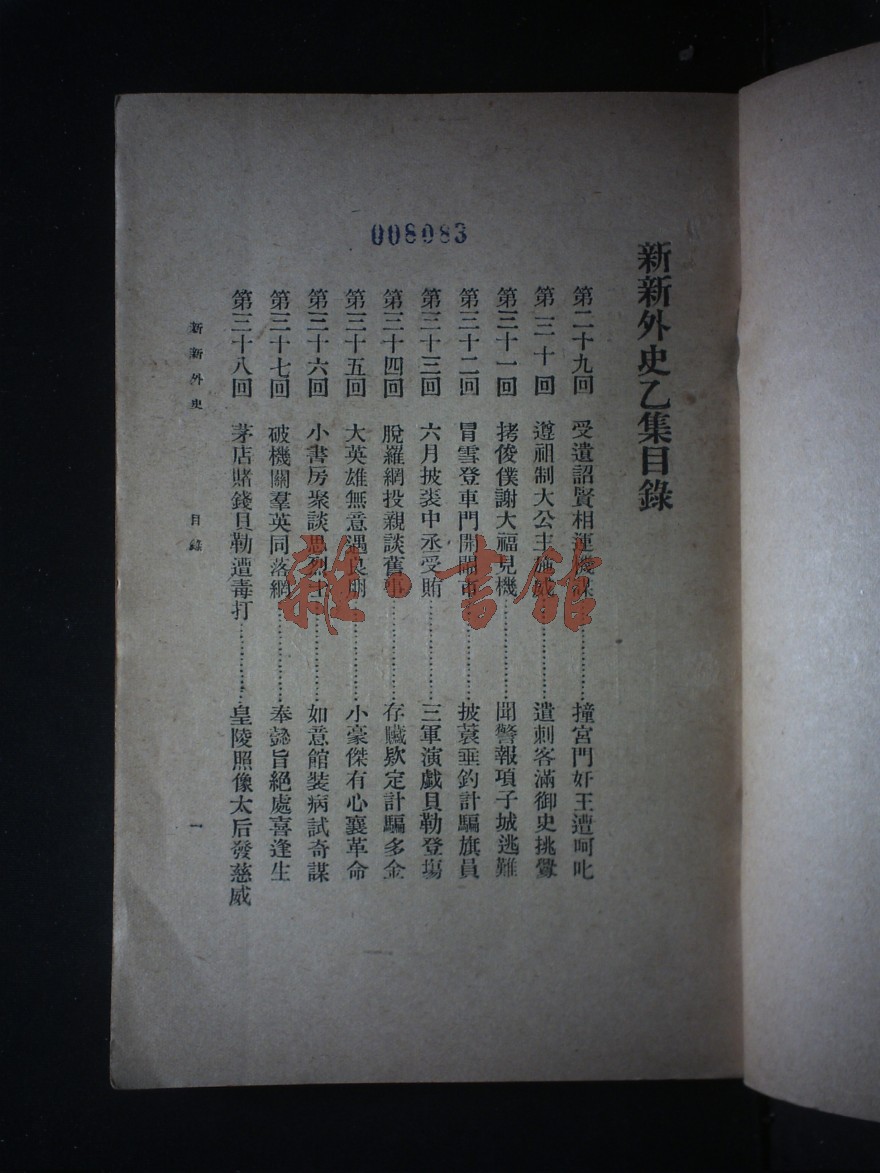 新新外史乙集目錄
第二十九回 受遺詔賢相運機謀…………撞宮門奸王遭呵叱
第三十回 遵祖制大公主施威…………遣刺客滿御史挑釁
第三十一回 拷俊僕謝大福見機…………聞警報項子城逃難
第三十二回 冒雪登車門開鬧市…………披蓑垂釣計騙旗員
第三十三回 六月披裘中丞受賄…………三軍演戲貝勒登塲
第三十四回 脫羅網投親談舊事…………存贓欵定計騙多金
第三十五回 大英雄無意遇良朋…………小豪傑有心襄革命
第三十六回 小書房聚談思烈士…………如意館裝病試奇謀
第三十七回 破機關羣英同落網…………奉懿旨絕處喜逢生
第三十八回 茅店賭錢貝勒遭毒打…………皇陵照像太后發慈威
新新外史 目錄 一
008083
雜·書館